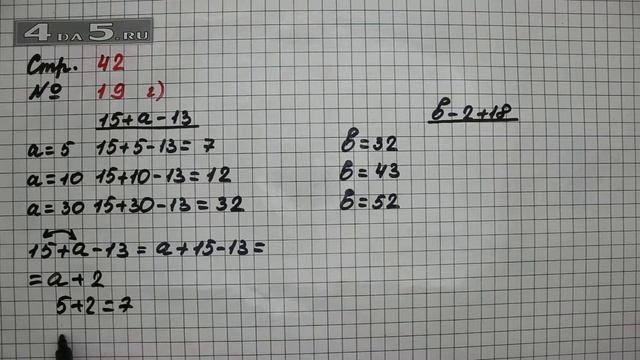 4DA5.RU
Стр. 42
№ 19 г)
15+а-13
а=5 15+5-13=7
а=10 15+10-13=12
а=30 15+30-13=32
15+а-13=а+15-13=
=а+2
5+2=7
в-2+18
в=32
в=43
в=52